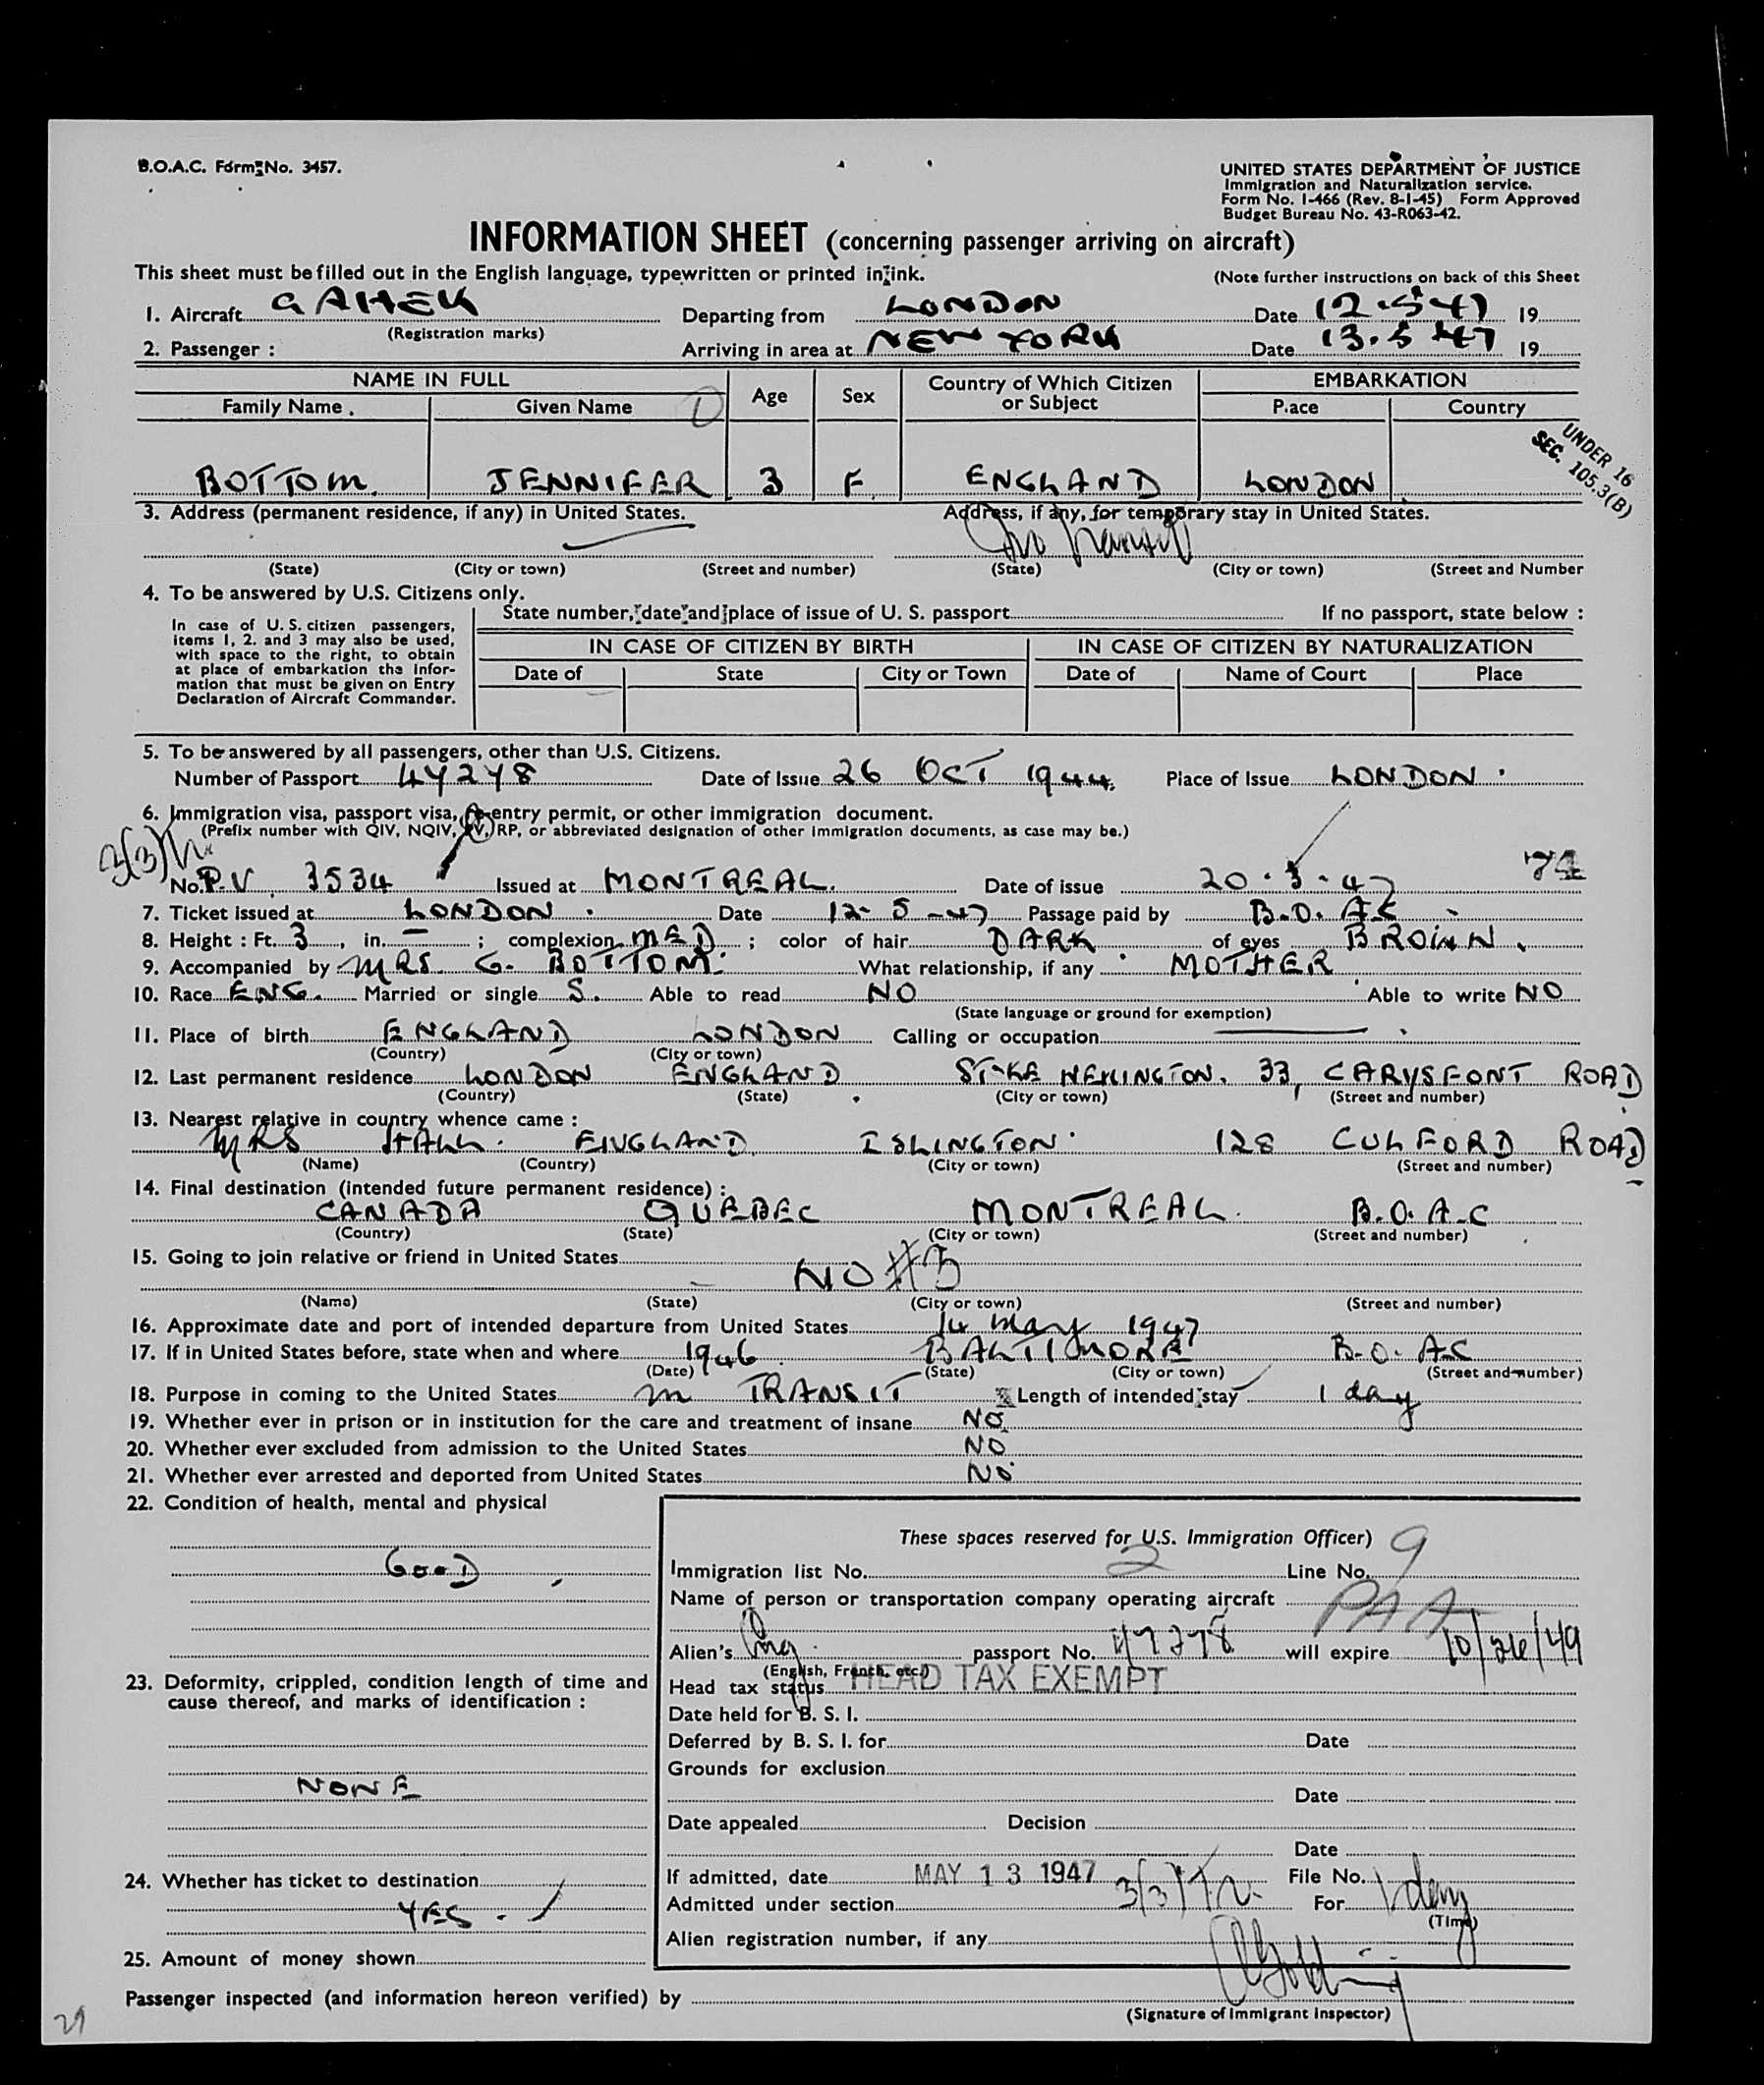 B.O.A.C. Form No. 3457.
UNITED STATES DEPARTMENT OF JUSTICE
Immigration and Naturalization service.
Form No. I-466 (Rev. 8-1-45) Form Approved
Budget Bureau No. 43-R063-42.
INFORMATION SHEET (concerning passenger arriving on aircraft)
This sheet must be filled out in the English language, typewritten or printed in ink. (Note further instructions on back of this Sheet
1. Aircraft GAHEK Departing from LONDON Date 12.5.47 19
(Registration marks)
2. Passenger : Arriving in area at NEW YORK Date 13.5.47 19
NAME IN FULL Age Sex Country of Which Citizen or Subject EMBARKATION
Family Name. Given Name Place Country
UNDER 16
SEC. 105.3(B)
BOTTOM. JENNIFER 3 F ENGLAND LONDON
3. Address (permanent residence, if any) in United States. Address, if any, for temporary stay in United States.
(State) (City or town) (Street and number) (State) (City or town) (Street and Number
4. To be answered by U.S. Citizens only.
State number, date and place of issue of U. S. passport If no passport, state below :
In case of U. S. citizen passengers,
items 1, 2. and 3 may also be used,
with space to the right, to obtain
at place of embarkation the infor-
mation that must be given on Entry
Declaration of Aircraft Commander.
IN CASE OF CITIZEN BY BIRTH IN CASE OF CITIZEN BY NATURALIZATION
Date of State City or Town Date of Name of Court Place
5. To be answered by all passengers, other than U.S. Citizens.
Number of Passport 47278 Date of Issue 26 OCT 1944. Place of Issue LONDON.
6. Immigration visa, passport visa, re-entry permit, or other immigration document.
(Prefix number with QIV, NQIV, PV, RP, or abbreviated designation of other immigration documents, as case may be.)
No. P.V 3534 Issued at MONTREAL. Date of issue 20.3.47
7. Ticket issued at LONDON. Date 12-5-47 Passage paid by B.O.A.C
8. Height : Ft. 3, in. – ; complexion MED ; color of hair DARK of eyes BROWN.
9. Accompanied by MRS. G. BOTTOM. What relationship, if any MOTHER
10. Race ENG. Married or single S. Able to read NO Able to write NO
(State language or ground for exemption)
11. Place of birth ENGLAND LONDON Calling or occupation
(Country) (City or town)
12. Last permanent residence LONDON ENGLAND STOKE NEWINGTON. 33, CARYSFONT ROAD
(Country) (State) (City or town) (Street and number)
13. Nearest relative in country whence came :
MRS HALL. ENGLAND ISLINGTON. 128 CULFORD ROAD
(Name) (Country) (City or town) (Street and number)
14. Final destination (intended future permanent residence) :
CANADA QUEBEC MONTREAL. B.O.A.C
(Country) (State) (City or town) (Street and number)
15. Going to join relative or friend in United States
NO #3
(Name) (State) (City or town) (Street and number)
16. Approximate date and port of intended departure from United States 14 May 1947
17. If in United States before, state when and where 1946 BALTIMORE B.O.A.C
(Date) (State) (City or town) (Street and number)
18. Purpose in coming to the United States in TRANSIT Length of intended stay 1 day
19. Whether ever in prison or in institution for the care and treatment of insane NO
20. Whether ever excluded from admission to the United States NO
21. Whether ever arrested and deported from United States NO
22. Condition of health, mental and physical
GOOD
These spaces reserved for U.S. Immigration Officer)
Immigration list No. 2 Line No. 9
Name of person or transportation company operating aircraft PAA
Alien's Eng. passport No. 47278 will expire 10/26/49
(English, French, etc.)
23. Deformity, crippled, condition length of time and
cause thereof, and marks of identification :
NONE
Head tax status HEAD TAX EXEMPT
Date held for B. S. I.
Deferred by B. S. I. for Date
Grounds for exclusion
Date
Date appealed Decision
Date
24. Whether has ticket to destination
YES.
If admitted, date MAY 13 1947 File No.
Admitted under section For 1 day
(Time)
Alien registration number, if any
25. Amount of money shown
Passenger inspected (and information hereon verified) by
(Signature of Immigrant Inspector)
29